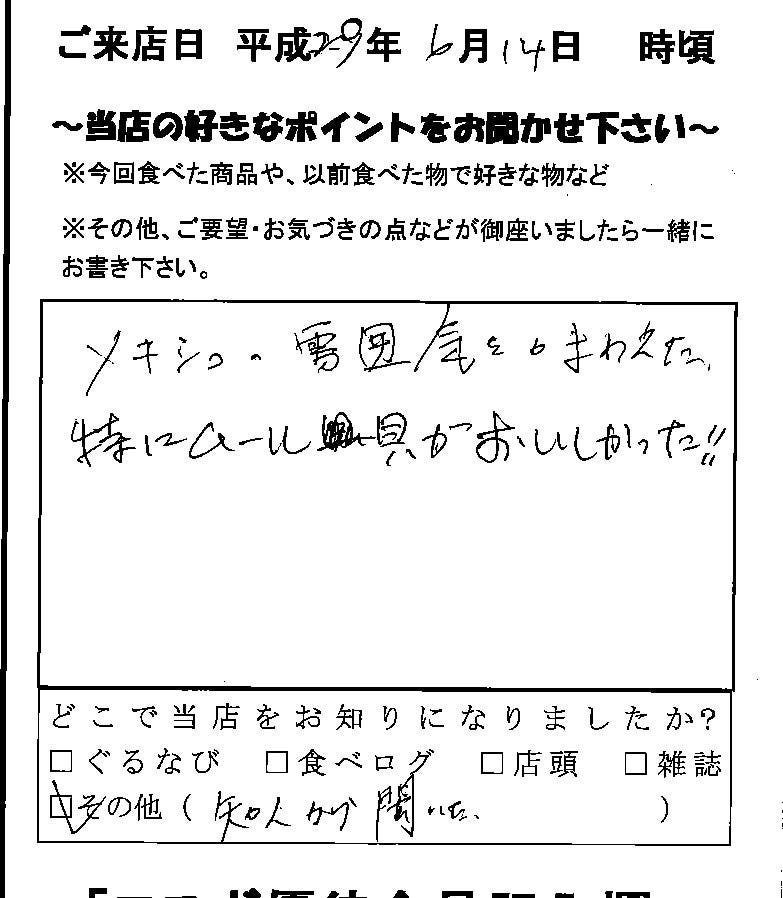 ご来店日 平成29年 6月14日 時頃
~当店の好きなポイントをお聞かせ下さい~
※今回食べた商品や、以前食べた物で好きな物など
※その他、ご要望・お気づきの点などが御座いましたら一緒に
お書き下さい。
メキシコの雰囲気を
特にムール貝がおいしかった!!
どこで当店をお知りになりましたか?
□ぐるなび □食べログ □店頭 □雑誌
☑その他(知人から聞いた、)